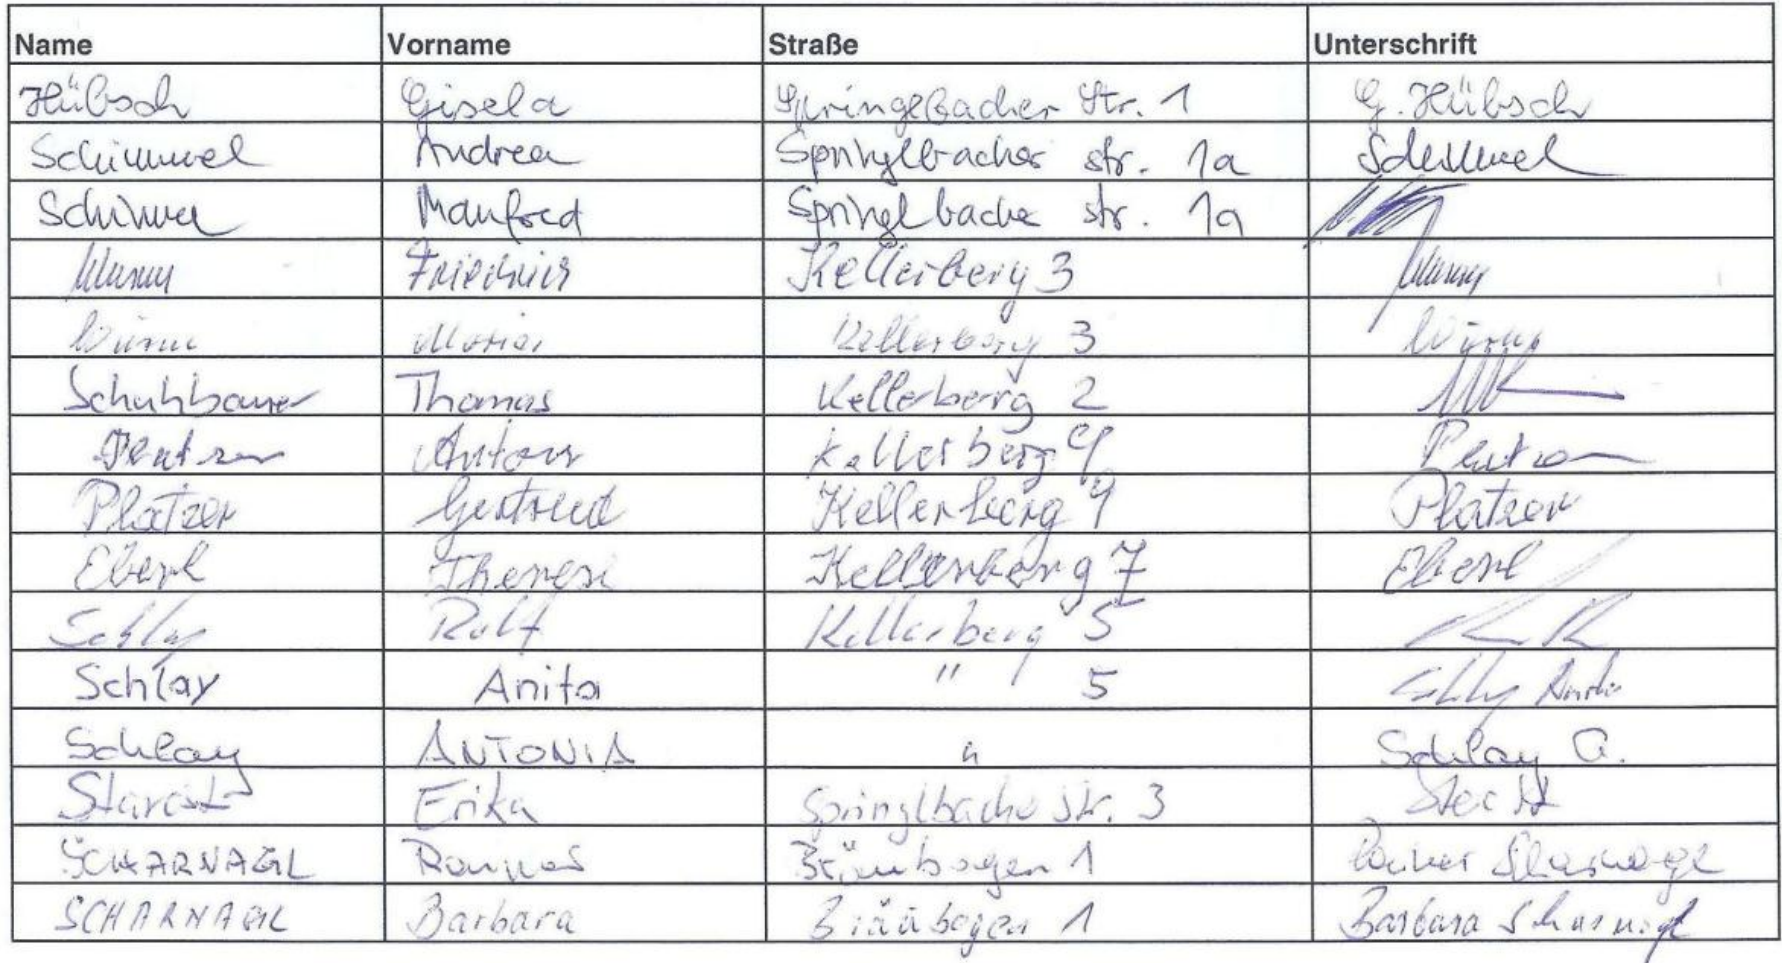 Name Vorname Straße Unterschrift
Hübsch Gisela Springelbacher Str. 1 G. Hübsch
Schimmel Andrea Springlbacher str. 1a Schimmel
Schimmel Manfred Springlbacher str. 1a
Friedrich Kellerberg 3
Würm Maria Kellerberg 3 Würm
Schuhbauer Thomas Kellerberg 2
Anton Kellerberg 9
Platzer Gertraud Kellerberg 9 Platzer
Eberl Theresi Kellerberg 7 Eberl
Schlay Rolf Kellerberg 5
Schlay Anita " 5 Schlay Anita
Schlay ANTONIA " Schlay A.
Erika Springlbacher Str. 3
SCHARNAGL Bräubogen 1 Scharnagl
SCHARNAGL Barbara Bräubogen 1 Barbara Scharnagl